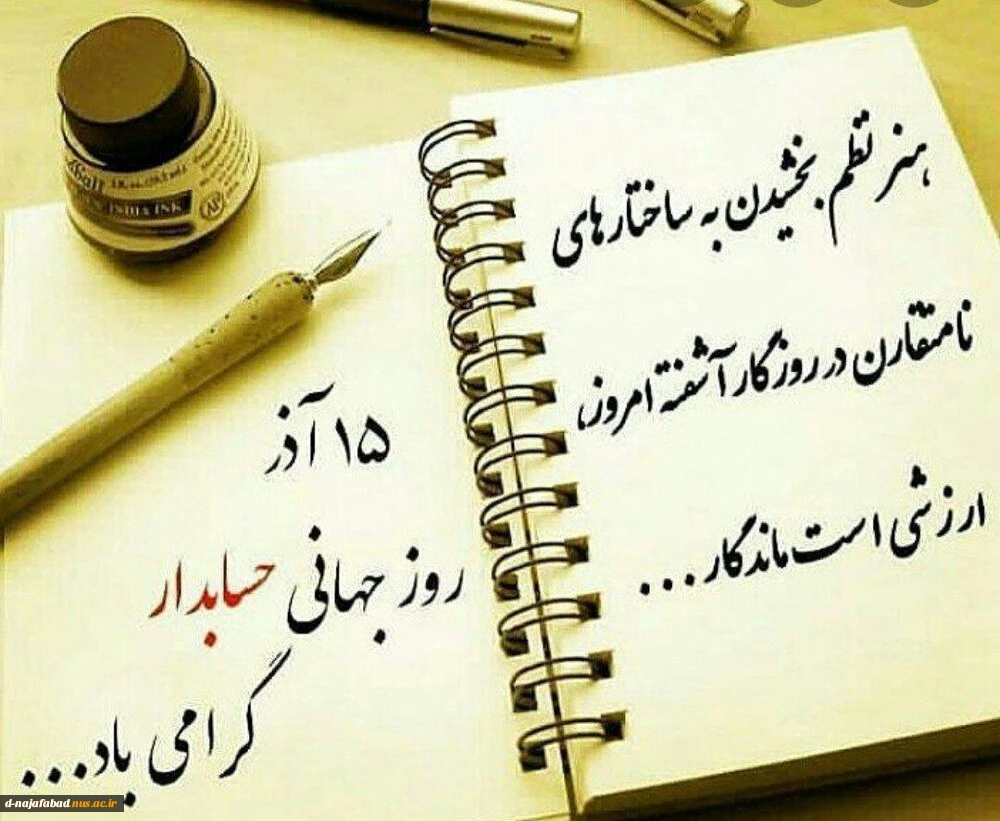 هنر نظم بخشیدن به ساختارهای
نامتقارن در روزگار آشفته امروز،
ارزشی است ماندگار...
۱۵ آذر
روز جهانی حسابدار
گرامی باد...
INDIA INK
d-najafabad.nus.ac.ir